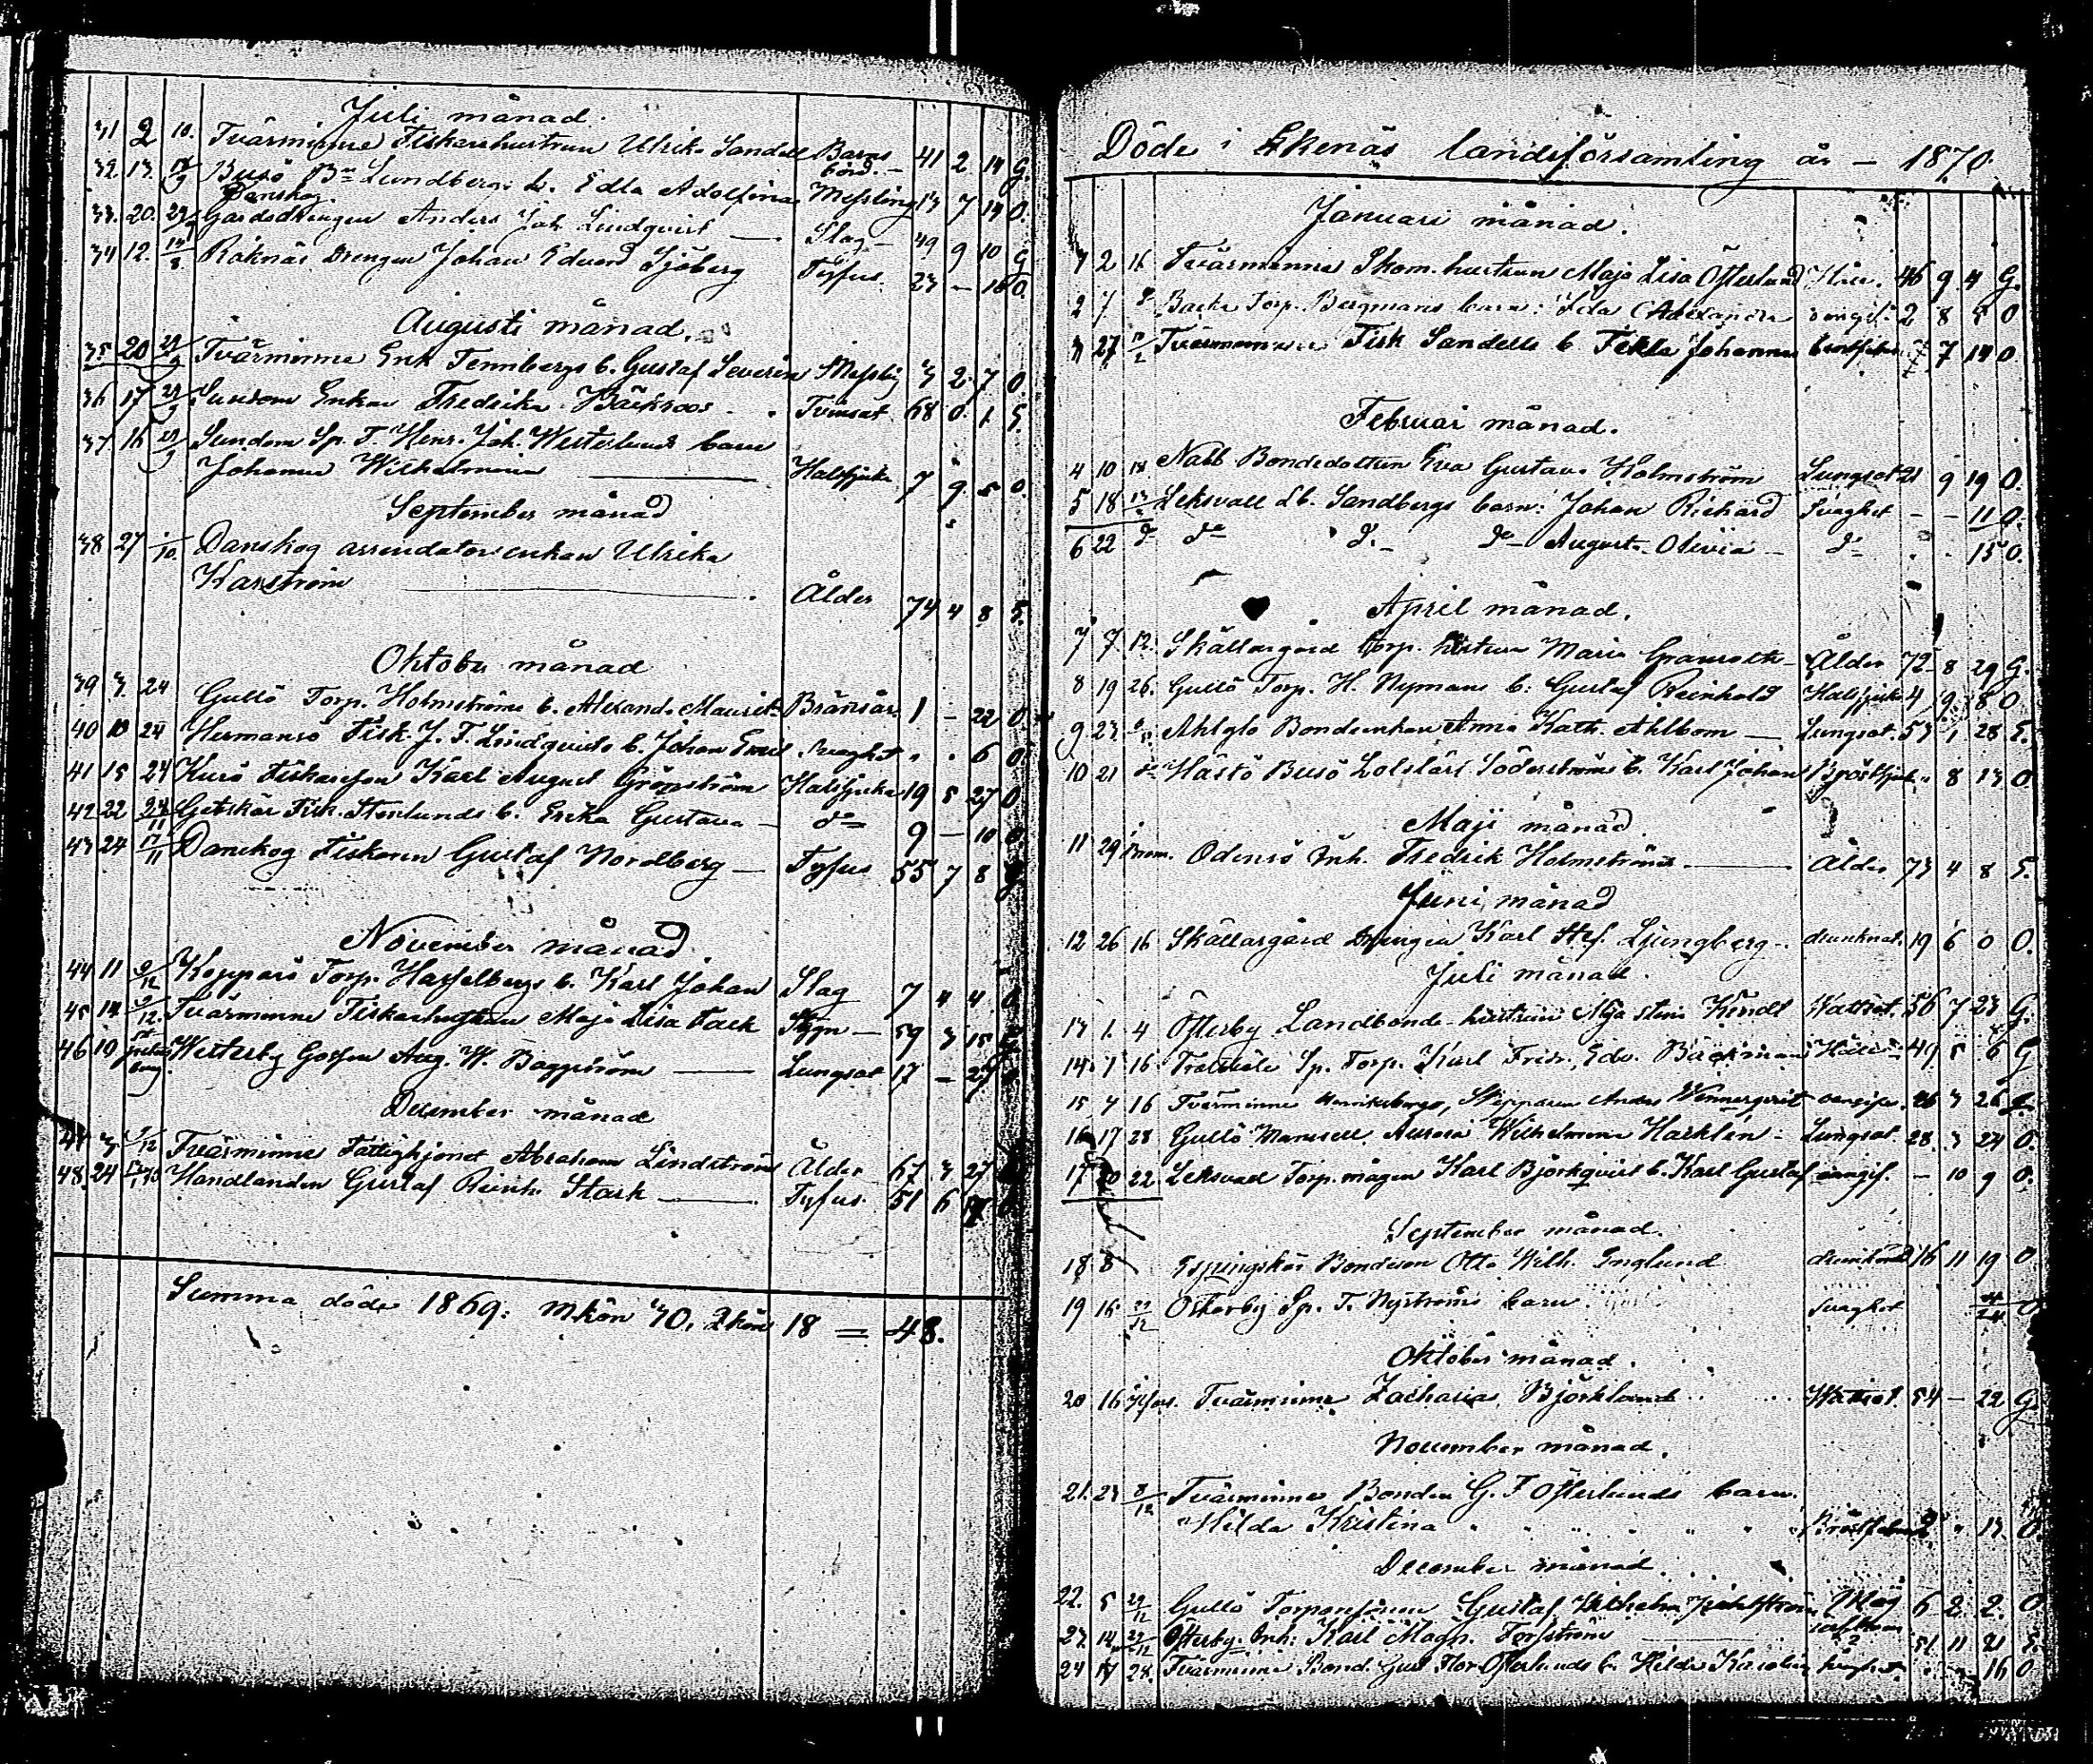 Juli månad.
31 2 10. Tvärminne Fiskarehustrun Ulrika Sandell Barns börd. 41 2 14 G
32. 13. Busö Bn Lundbergs b. Edla Adolfina Messling 13 7 14 O.
Danskog
33. 20. Gårdsdrengen Anders Joh Lindqvist — Slag — 49 9 10 G
34 12. Räknäs Drengen Johan Edvard Sjöberg Tyfus. 23 — 18 O.
Augusti månad.
35 20 Tvärminne Enk Tennbergs b. Gustaf Severin Messling 3 2 7 O.
36 17 Sundom Enkan Fredrika Bäckroos Tvinsot 68 0. 1. E.
37 16 Sundom Sp. T. Henr. Joh. Westerlunds barn
Johanna Wilhelmina — Halssjuka 7 9 5 O.
September månad
38 27 /10. Danskog arrendator enkan Ulrika
Karström — Ålder 74 4 8 E.
Oktober månad
39 3. 24 Gullö Torp. Holmströms b. Alexand. Maurits Brännsår 1 — 22 O.
40 10 24 Hermansö Fisk. J. F. Lindqvists b. Johan Emil Svaghet " . 6 O.
41 15 24 Kurö Fiskareson Karl August Grönström Halssjuka 19 5 27 O
42 22 /11 Getskär Fisk. Stenlunds b. Erika Gustava — do 9 — 10 O.
43 24 /11 Danskog Fiskaren Gustaf Nordberg — Tyfus 55 7 8 G
November månad.
44 11 /12 Kopparö Torp. Hasselbergs b. Karl Johan Slag 7 4 4 O
45 14 /12. Tvärminne Fiskarhustrun Maja Lisa Fack Stygn — 59 3 15
46 10 Westerby Gossen Aug. W. Baggström — Lungsot 17 — 27
December månad
47 3 /12 Tvärminne Fattighjonet Abraham Lindström Ålder 67. 3 27
48. 24 Handlanden Gustaf Reinh. Stark — Tyfus 51 6
Summa döde 1869: Mkön 30, Qkön 18 = 48.
Döde i Ekenäs landsförsamling år — 1870.
Januari månad.
2 16 Tvärminne Skom. hustrun Maja Lisa Österlund Håll. 46 9 4 G.
2 7 do Backa Torp. Bergmans barn: Ida Alexandra 2 8 5 O
3 27 /2 Tvärminne Fisk Sandells b Tekla Johanna 7 14 O.
Februari månad.
4 10 18 Nabb Bondedottren Eva Gustava Holmström Lungsot 21 9 19 O.
5 18 Leksvall Lb. Sandbergs barn: Johan Richard Svaghet — — 11 O.
6 22 do do do do Augusta Olivia — do . . 15 O.
April månad.
7 7. 12. Skällargård Torp. hustrun Maria Granroth — Ålder 72 8 29 G.
8 19 26. Gullö Torp. H. Nymans b: Gustaf Reinhold Halssjuka 4 9 8 O
9 23 Ahlglo Bondeenkan Anna Kath. Ahlbom — Lungsot 53 1 28 E.
10 21 Hästö Busö Lotslärl Söderströms b. Karl Johan Bröstsjuk. " 8 13 O
Maji månad
11 29 Odensö Inh. Fredrik Holmström — Ålder 73 4 8 E.
Juni månad
12 26 16 Skällargård Drengen Karl Stef. Ljungberg drunknat. 19 6 0 O.
Juli månad.
13 1. 4 Österby Landbonde-hustrun Maja Stina Wattsot. 56 7 23 G.
14. 1 16 Trollböle Sp. Torp. Karl Fredr. Edv. Bäckman Håll 49 5 6 G
15 4 16 Tvärminne Henriksbergs, Skepparen Anders Wennerqvist 26 3 26
16 17 28 Gullö Mamsell Aurora Wilhelmina Lungsot. 28. 3 24 O.
17 20 22 Leksvall Torp.mågen Karl Björkqvist b. Karl Gustaf — 10 9 O.
September månad.
18 8 Espingskär Bondeson Otto Wilh. Englund drunknad 16 11 19 O
19 16 /12 Österby Sp. T. Nyströms barn Svaghet
Oktober månad.
20 16 Tvärminne Zacharias Björklund Wattsot. 54 — 22 G.
November månad.
21. 23 8/12 Tvärminne Bonden G. F Österlunds barn.
Hilda Kristina " 13 O
December månad.
22. 5 29/12 Gullö Torparesonen Gustaf Wilhelm Slag 6 2. 2. O
23. 14 /12 Österby Inh: Karl Magn. Forsström — 51 11 21 E.
24 17 28. Tvärminne Bond. Gust Österlunds b. Hilda Karolina Svaghet 16 O